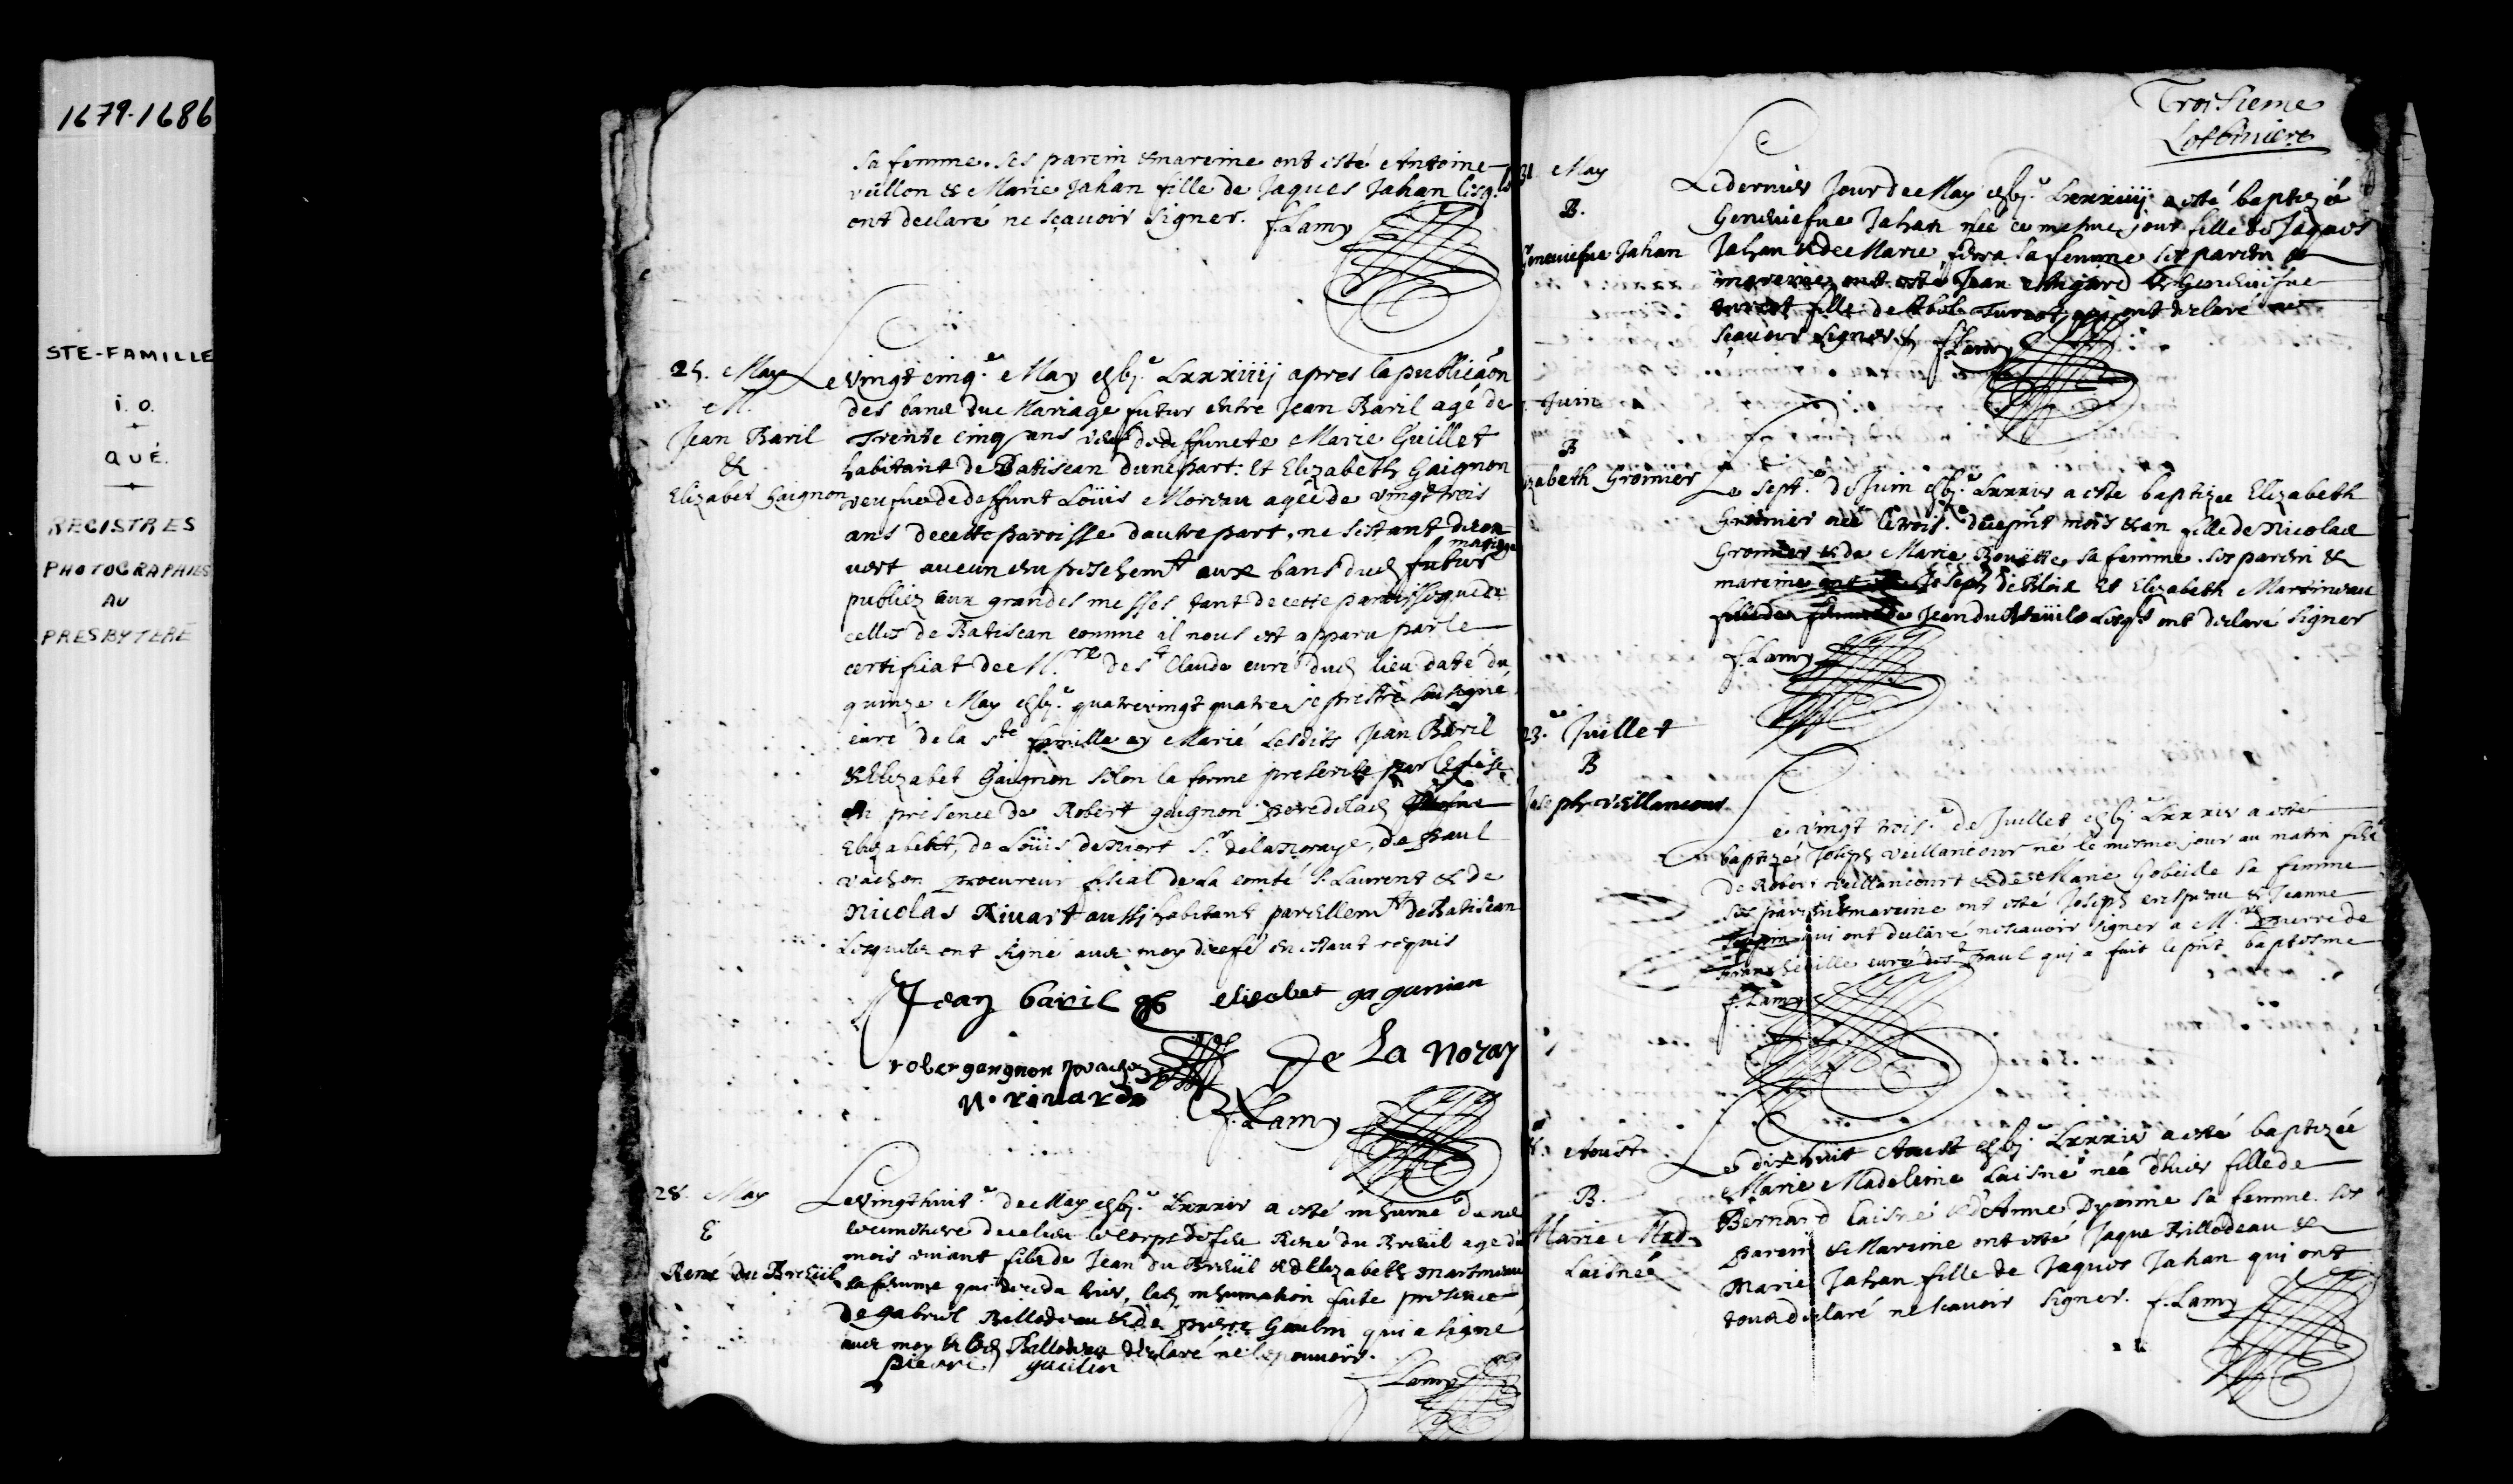 1679-1686
STE-FAMILLE
I. O.
QUÉ.
REGISTRES
PHOTOGRAPHIÉS
AU
PRESBYTERE
sa femme. ses parein & mareine ont esté Antoine
vüllon & Marie Jahan fille de Jaques Jahan lesq.ls
ont declaré ne sçavoir signer. f. Lamy
25. May
M.
Jean Baril
&
Elizabet Gaignon
Le vingt cinq.e May Lxxxiiij apres la publicaon
des bans du Mariage futur entre Jean Baril agé de
trente cinq ans veuf de deffuncte Marie Guillet
habitant de Batiscan d'une part: Et Elizabeth Gaignon
veufue de deffunt Loüis Moreau agée de vingt trois
ans de cette paroisse d'autre part, ne s'estant decou
mariage
vert aucun empeschem.t aux bans dud futur
publiez aux grandes messes tant de cette paroisse que de
celles de Batiscan comme il nous est apparu par le
certificat de M.re de St Claude curé dud lieu daté du
quinze May quatrevingt quatre je prestre soussigné
curé de la Ste famille ay Marié lesdits Jean Baril
& Elizabet Gaignon selon la forme prescrite par l'eglise
en presence de Robert gaignon pere de lad
Elizabeth, de Loüis de Niort S.r de la Noraye, de Paul
vachon procureur fiscal de la comté S. Laurent & de
Nicolas Rivart aussi habitant pareillem.t de Batiscan
Lesquels ont signé avec moy de ce enestant requis
Jean baril elisabet gagunian
rober gangnon pvachon De La Noray
N. rivarde f. Lamy
28. May
E
René du Breüil
Le vingt huit.e de May Lxxxiv a esté inhumé dans
le cimetiere de ce lieu le corps de feu René du Breüil agé d'un
mois vivant fils de Jean du Breüil & d'Elizabeth Martineau
sa femme qui deceda hier, lad inhumation faite presence
de gabriel Billodeau & de pierre Gaulin qui a signé
avec moy & led Billodeau declaré ne le pouvoir.
pierre gaulin f. Lamy
Troisieme
Lotbiniere
31 May
B.
Geneviefue Jahan
Le dernier Jour de May Lxxxiiij a esté baptizée
Geneviefue Jahan née ce mesme jour fille de Jaques
Jahan & de Marie ferra sa femme ses parein &
mareine ont esté Jean & Geneviefue
turcot fille de Abel Turcot qui ont declaré ne
sçavoir signer f. Lamy
Juin
B
izabeth Gromier
Le sept.e de Juin Lxxxiv a esté baptizée Elizabeth
Gromier née le trois.e du epnt mois & an fille de Nicolas
Gromier & de Marie Boüette sa femme. ses parein &
mareine ont Joseph de Blois Et Elizabeth Martineau
femme de Jean du Breüil Lesq.ls ont declaré signer
f. Lamy
23.e Juillet
B
Joseph veillancour
Le vingt trois.e de Juillet Lxxxiv a esté
baptizé Joseph veillancour né le mesme jour au matin fils
de Robert veillancourt & de Marie Gobeille sa femme
ses parein & mareine ont esté Joseph & Jeanne
qui ont declaré ne scavoir signer a M.re pierre de
Francheville curé de St Paul qui a fait le pnt baptesme
f. Lamy
8. Aoust
B.
Marie Mad.
Laisnée
Le dix huit Aoust Lxxxiv a esté baptizée
Marie Madeleine Laisné née d'hier fille de
Bernard Laisné & d'Anne Dyonne sa femme. ses
Parein & Mareine ont esté Jaque Billodeau &
Marie Jahan fille de Jaques Jahan qui ont
tous declaré ne scavoir signer. f. Lamy